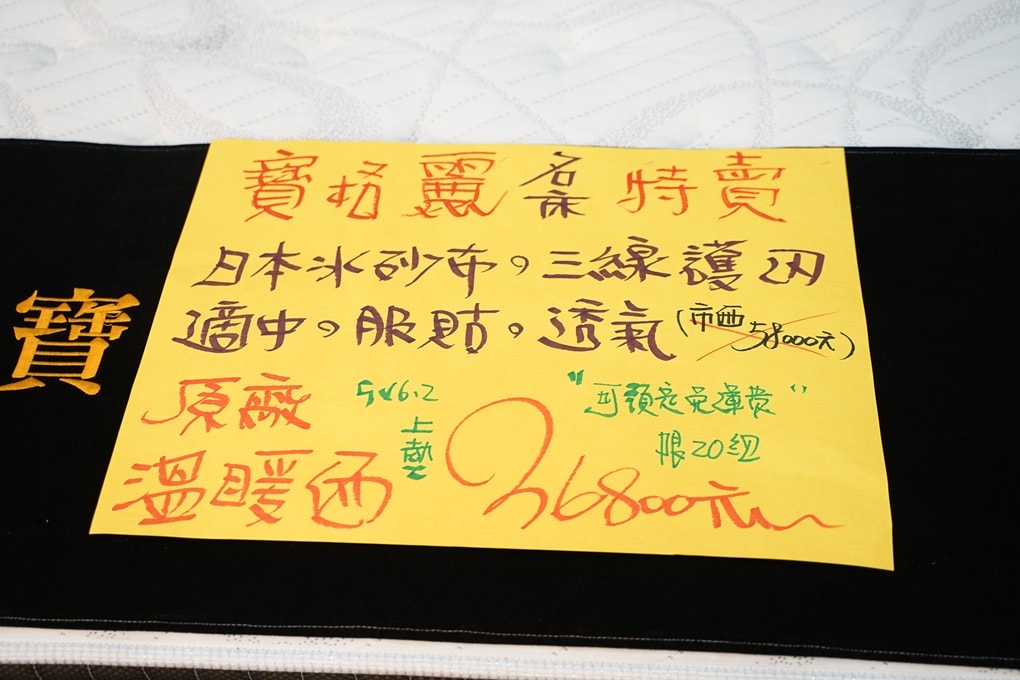 寶格麗名床特賣
日本冰砂布,三線護边
適中。服貼。透氣(市価58000元)
寶
原廠
溫暖価
5X6.2
上墊
"可預定免運費"
限20組
26800元